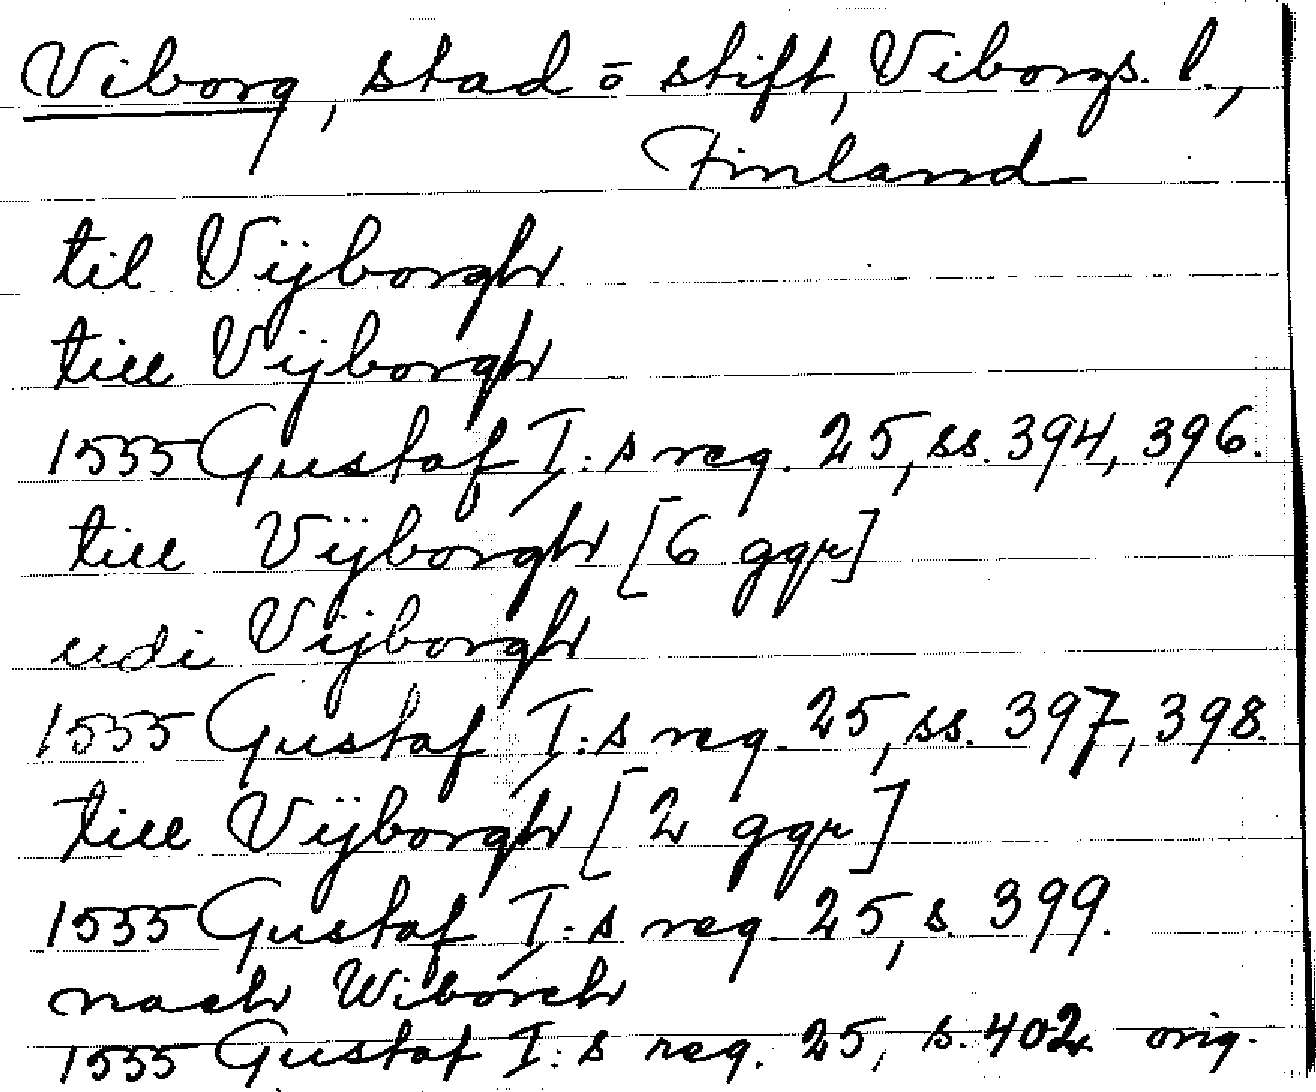 Viborg, stad o stift, Viborgs. l.,
Finland
til Vijborgh
till Vijborgh
1555 Gustaf I:s reg. 25, ss. 394, 396.
till Vijborgh [6 ggr]
udi Vijborgh
1555 Gustaf I:s reg. 25, ss. 397, 398.
till Vijborgh [2 ggr]
1555 Gustaf I:s reg. 25, s. 399.
nach Wiborch
1555 Gustaf I:s reg. 25, s. 402 orig.